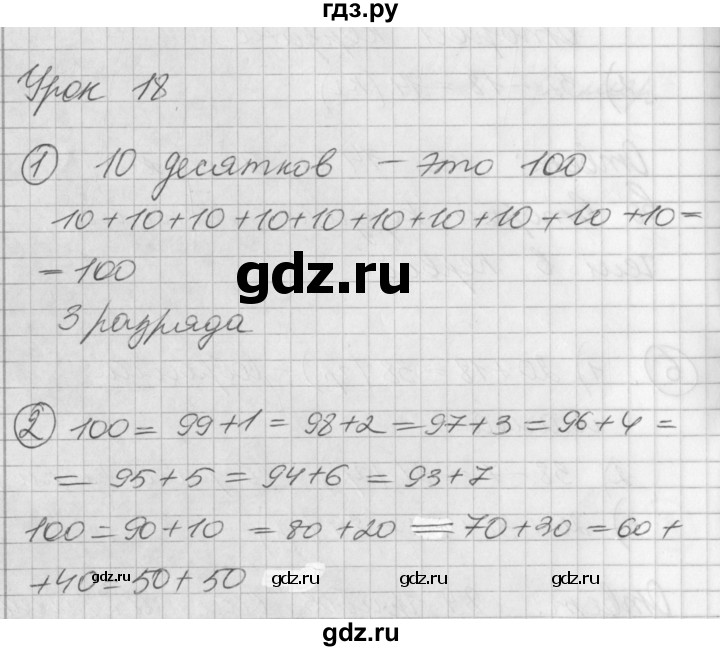 гдз.ру
Урок 18
① 10 десятков – это 100
10+10+10+10+10+10+10+10+10+10=
=100
gdz.ru
3 разряда
② 100=99+1=98+2=97+3=96+4=
=95+5=94+6=93+7
100=90+10=80+20=70+30=60+
+40=50+50
gdz.ru gdz.ru gdz.ru gdz.ru
gdz.ru